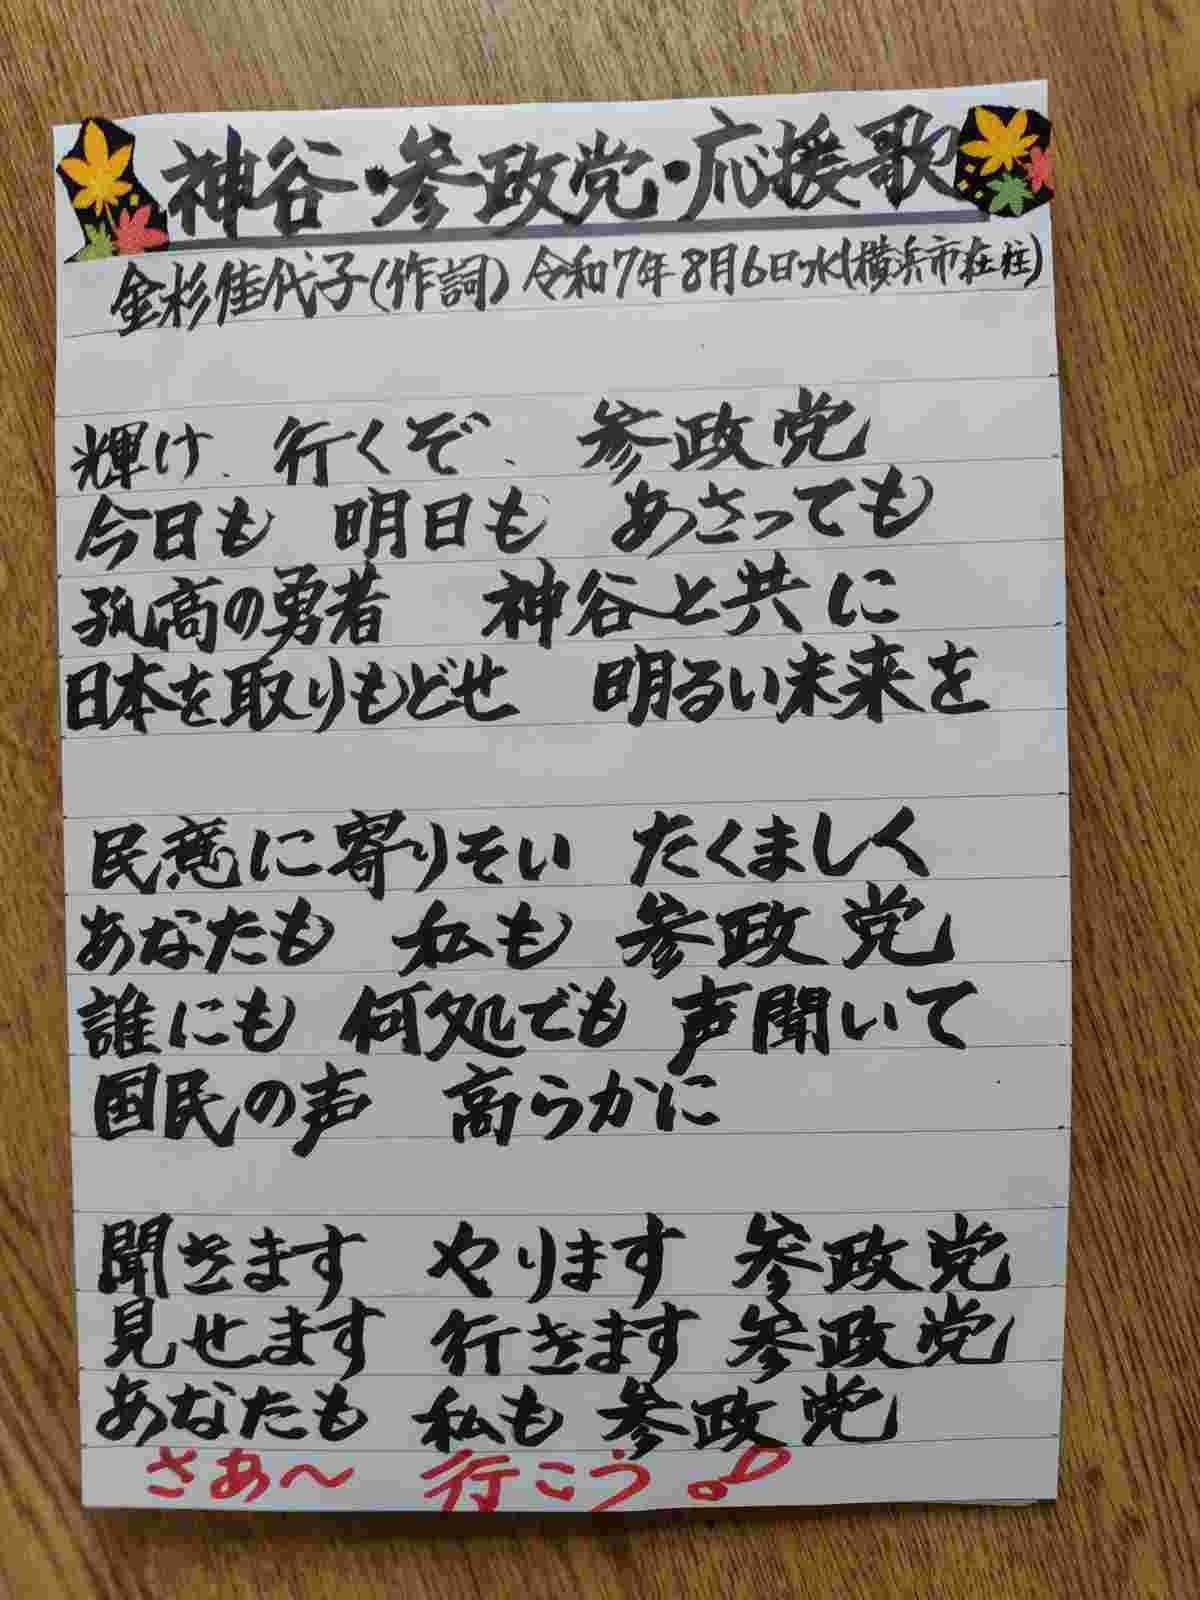 神谷・参政党・応援歌
金杉佳代子(作詞) 令和7年8月6日水(横浜市在住)
輝け、行くぞ、参政党
今日も 明日も あさっても
孤高の勇者 神谷と共に
日本を取りもどせ 明るい未来を
民意に寄りそい たくましく
あなたも 私も 参政党
誰にも 何処でも 声聞いて
国民の声 高らかに
聞きます やります 参政党
見せます 行きます 参政党
あなたも 私も 参政党
さあ〜 行こう♪